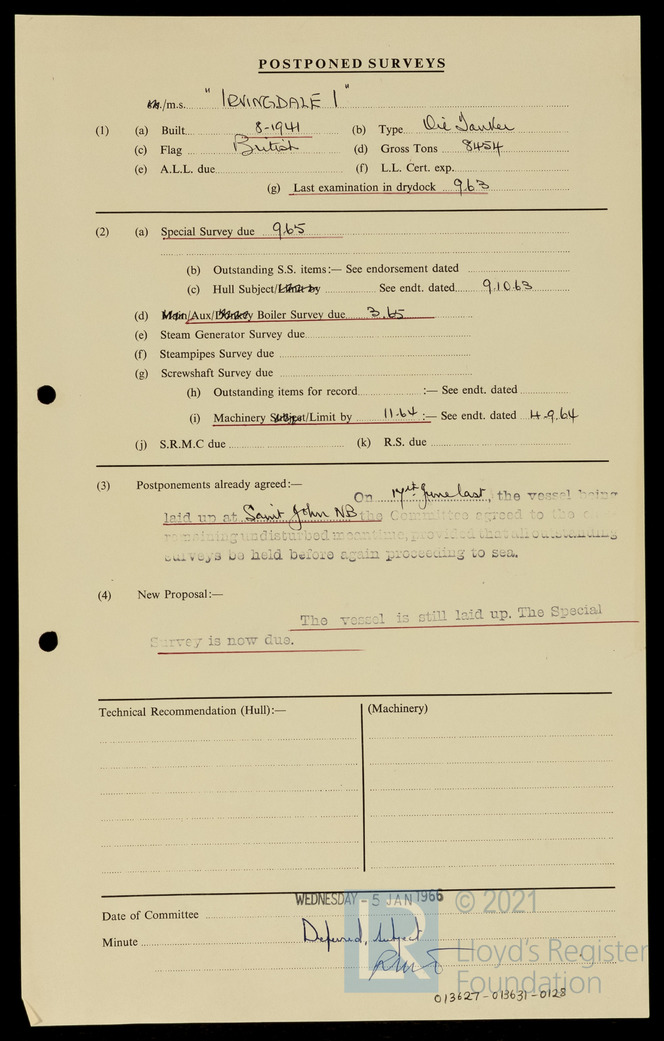 POSTPONED SURVEYS
/m.s. "IRVINGDALE I"
(1) (a) Built 8-1941 (b) Type Oil Tanker
(c) Flag British (d) Gross Tons 8454
(e) A.L.L. due (f) L.L. Cert. exp.
(g) Last examination in drydock 9.63
(2) (a) Special Survey due 9.65
(b) Outstanding S.S. items:— See endorsement dated
(c) Hull Subject/Limit by See endt. dated 9.10.63
(d) Main/Aux/Donkey Boiler Survey due 3.65
(e) Steam Generator Survey due
(f) Steampipes Survey due
(g) Screwshaft Survey due
(h) Outstanding items for record :— See endt. dated
(i) Machinery Subject/Limit by 11.64 :— See endt. dated 4.9.64
(j) S.R.M.C due (k) R.S. due
(3) Postponements already agreed:—
On June last, the vessel being
laid up at Saint John NB the Committee agreed to the
remaining undisturbed meantime, provided that all outstanding
surveys be held before again proceeding to sea.
(4) New Proposal:—
The vessel is still laid up. The Special
Survey is now due.
Technical Recommendation (Hull):— (Machinery)
WEDNESDAY - 5 JAN 1966
Date of Committee
Minute Deferred, subject
© 2021
LR
Lloyd's Register
Foundation
013627-013631-0128